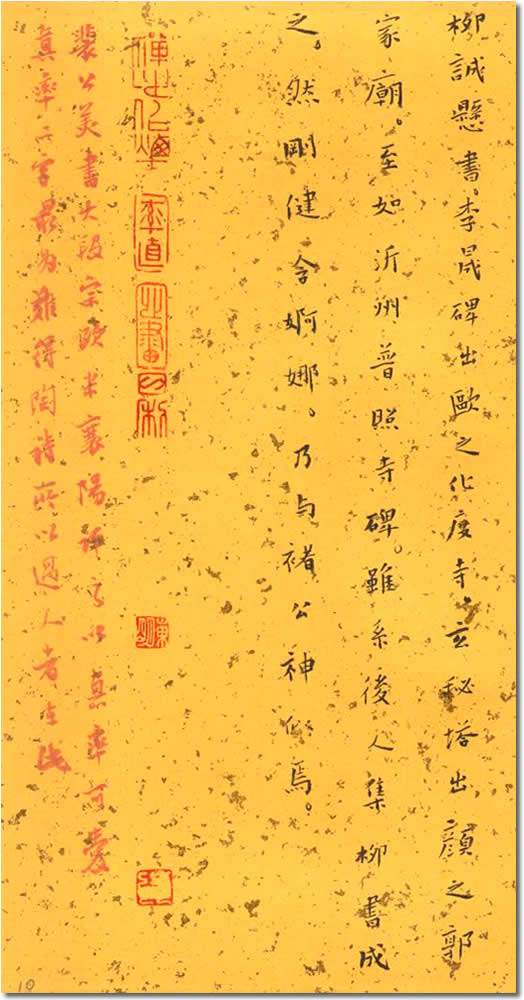 柳誠懸書。李晟碑出歐之化度寺。玄秘塔出顏之郭
家廟。至如沂州普照寺碑。雖系後人集柳書成
之。然剛健含婀娜。乃与褚公神似焉。
裴公美書大段宗欧米襄陽評之以真率可愛
真率二字最为難得陶詩所以過人者在此
10